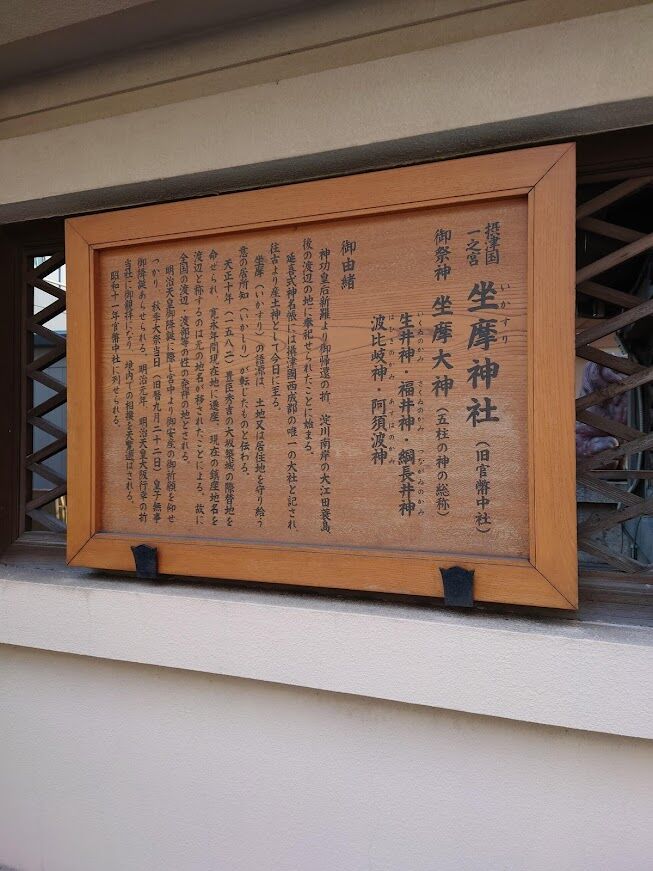 摂津国
一之宮
坐摩神社（旧官幣中社）
いかすり
御祭神 坐摩大神（五柱の神の総称）
生井神・福井神・綱長井神
いくゐのかみ さくゐのかみ つながゐのかみ
波比岐神・阿須波神
御由緒
神功皇后新羅より御帰還の折、淀川南岸の大江田蓑島、
後の渡辺の地に奉祀せられたことに始まる。
延喜式神名帳には摂津國西成郡の唯一の大社と記され、
往古より産土神として今日に至る。
坐摩（いかすり）の語源は、土地又は居住地を守り給う
意の居所知（いかしり）が転じたものと伝わる。
天正十年（一五八二）豊臣秀吉の大坂築城の際替地を
命せられ、寛永年間現在地に遷座、現在の鎮座地名を
渡辺と称するのは元の地名が移されたことによる。故に
全国の渡辺、渡部等の姓の発祥の地とされる。
明治天皇御降誕に際し宮中より御安産の御祈願を仰せ
つかり、秋季大祭当日（旧暦九月二十二日）皇子無事
御降誕あらせられる。明治元年、明治天皇大阪行幸の折
当社に御親拝になり、境内での相撲を天覧遊ばされる。
昭和十一年官幣中社に列せられる。